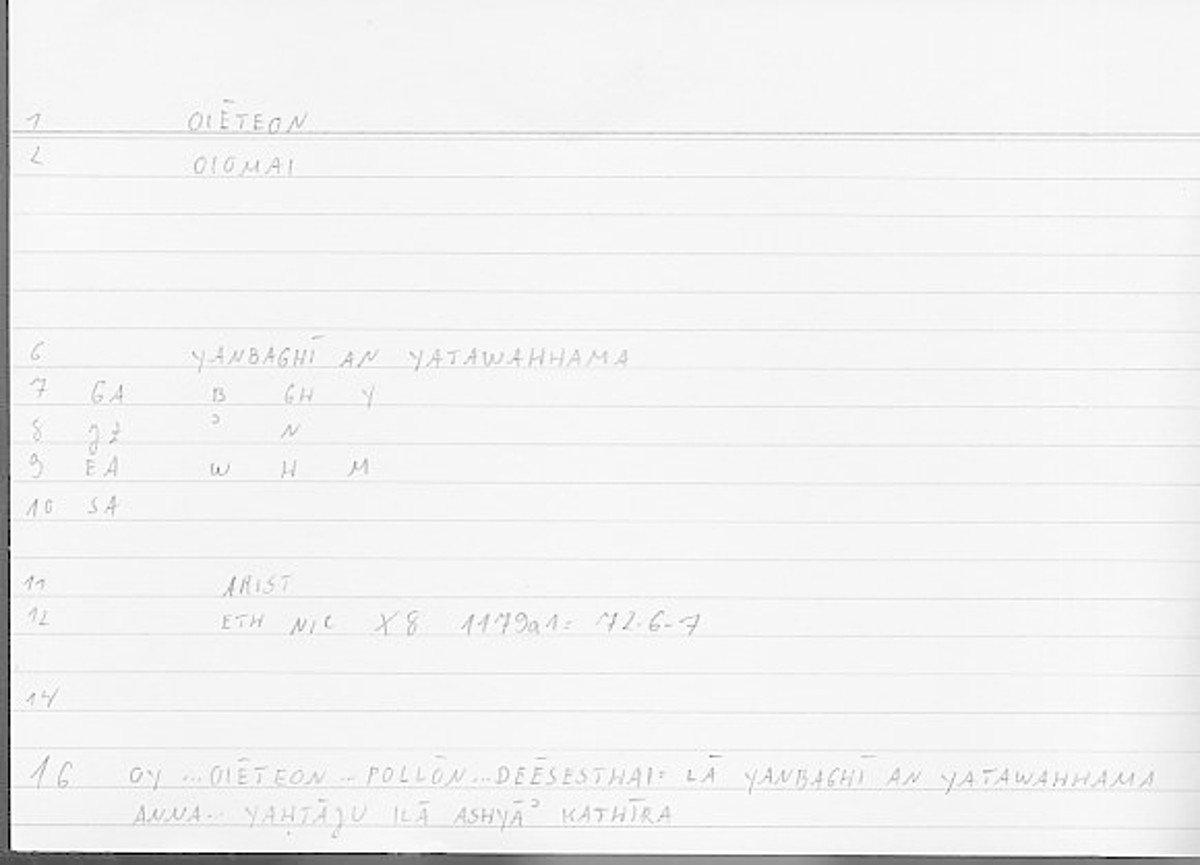 1 OIĒTEON
2 OIOMAI
6 YANBAGHĪ AN YATAWAHHAMA
7 GA B GH Y
8 ʾ N
9 EA W H M
10 SA
11 ARIST
12 ETH NIC X8 1179a1: 72.6-7
14
16 OY ...OIĒTEON ... POLLŌN...DEĒSESTHAI: LĀ YANBAGHĪ AN YATAWAHHAMA
ANNA.. YAḤTĀǧU ILĀ ASHYĀʾ KATHĪRA